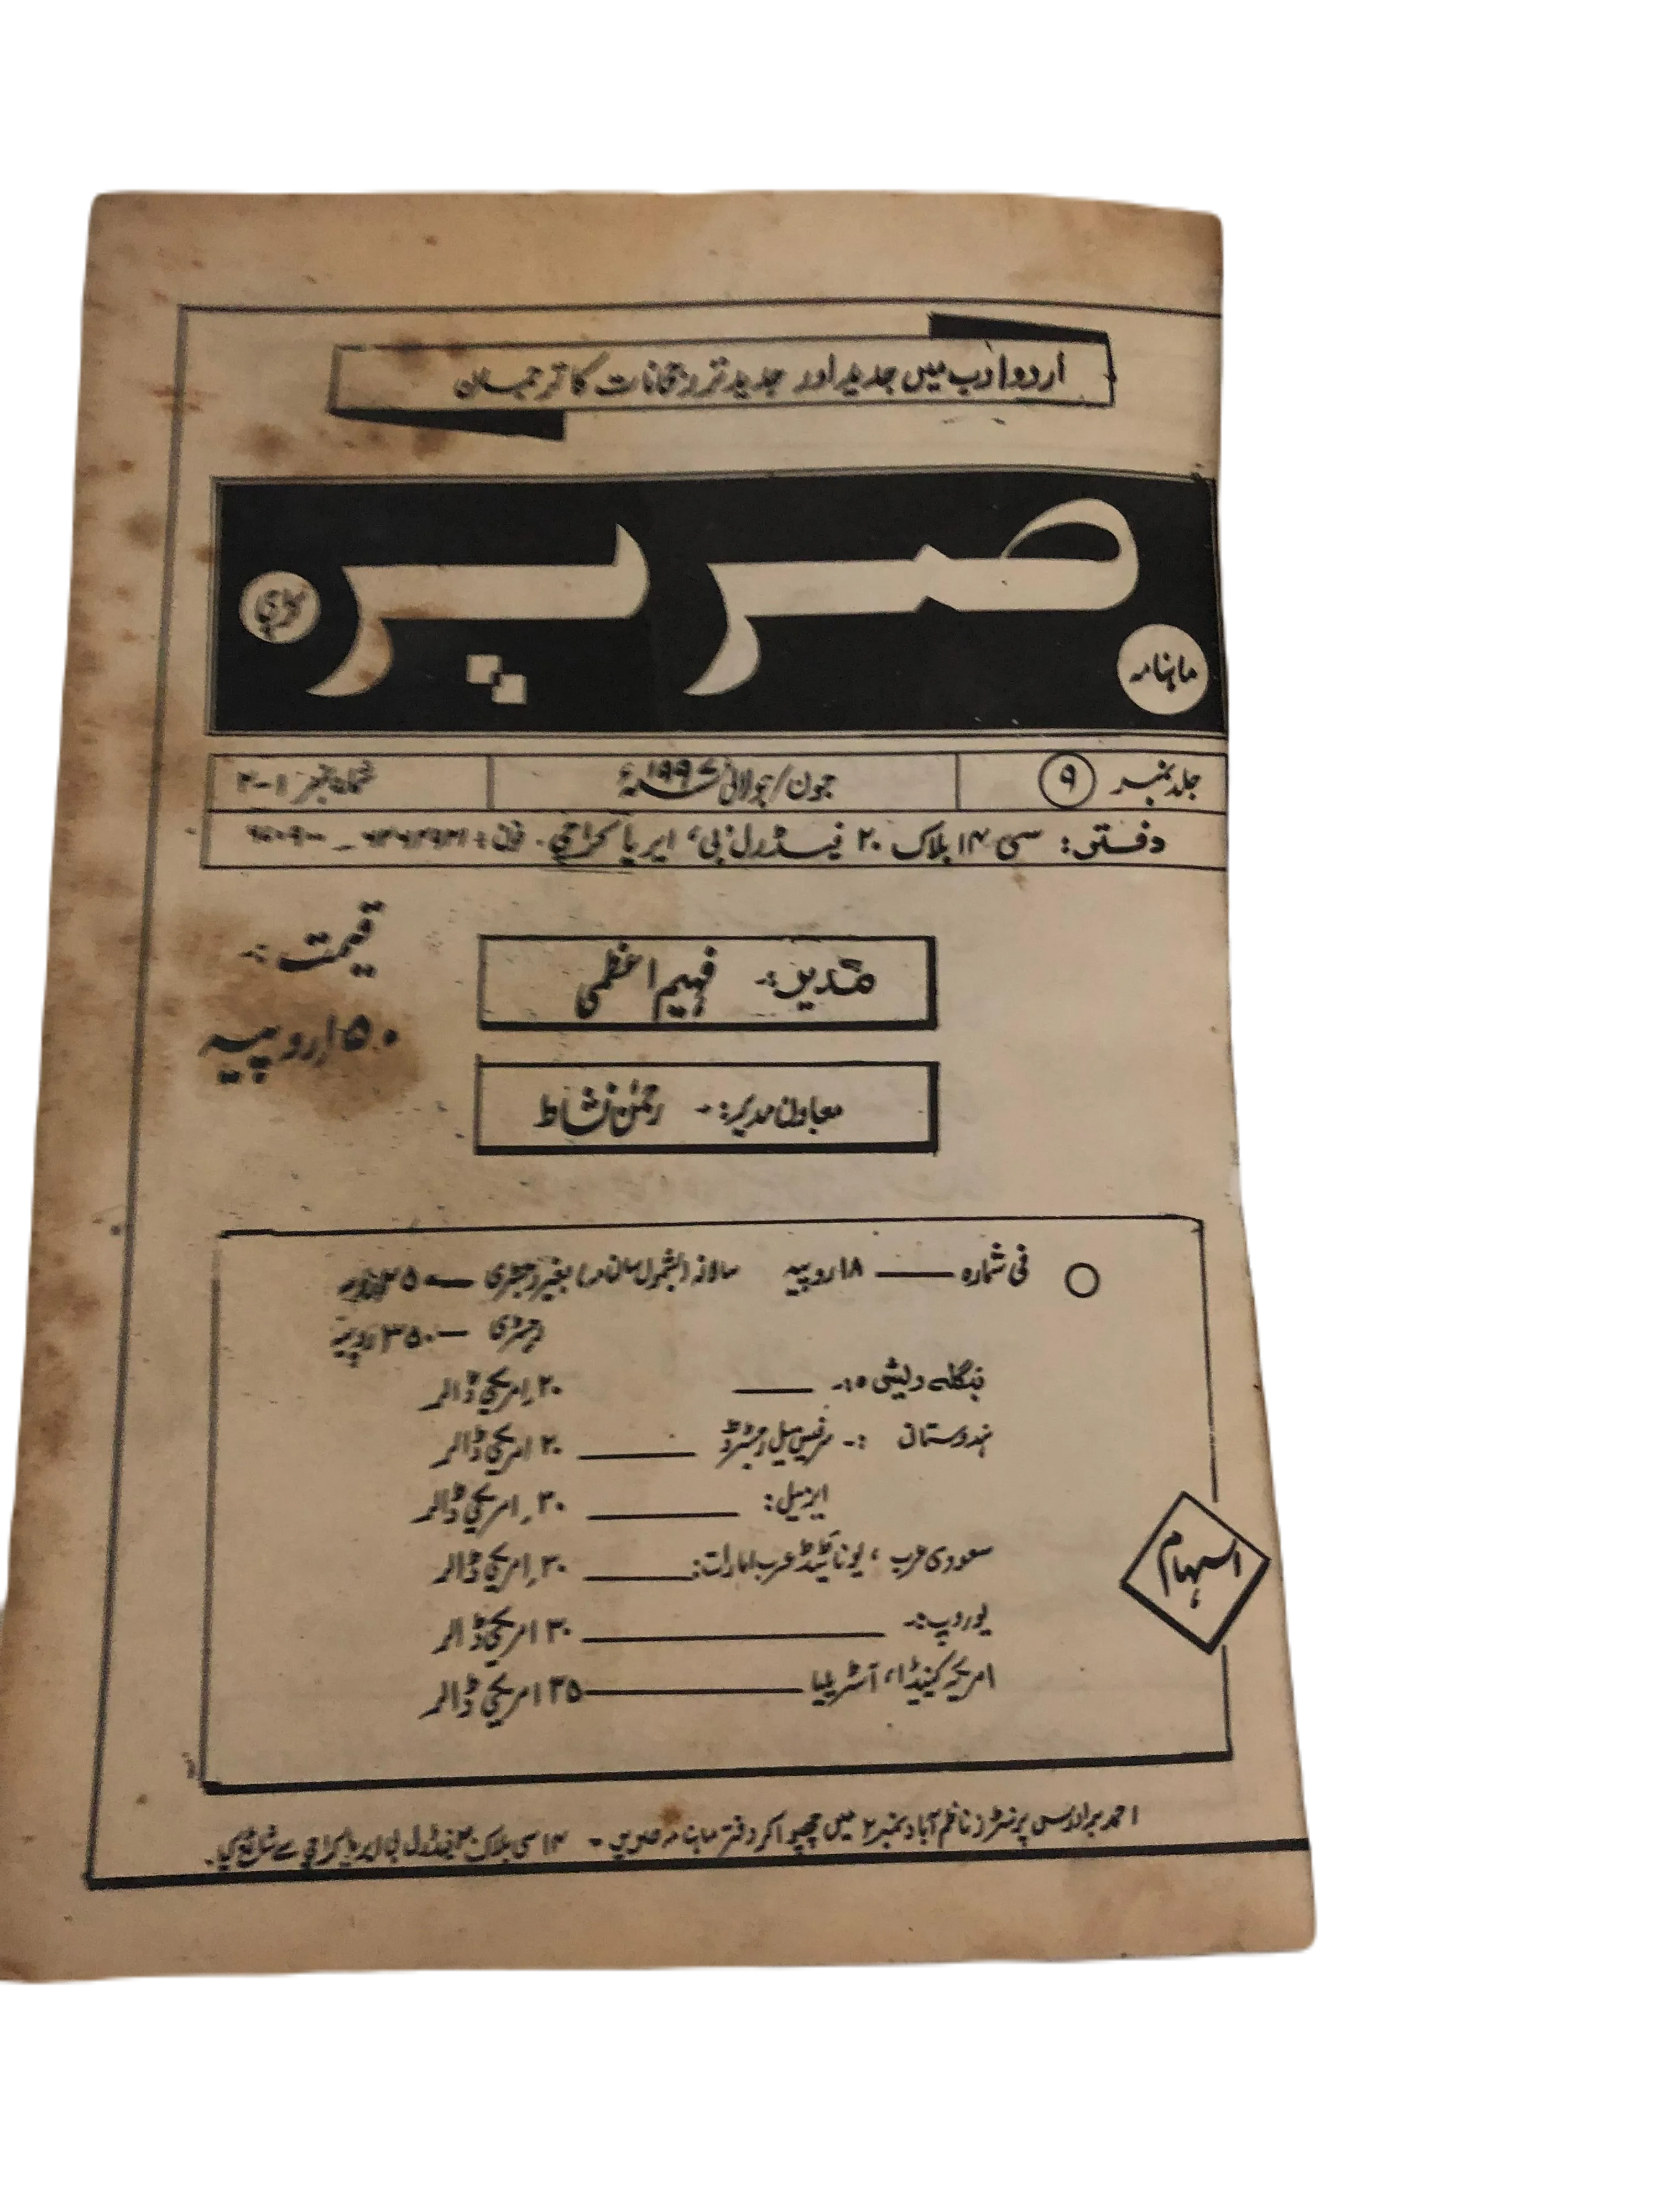 اردو ادب میں جدید اور جدید تر رجحانات کا ترجمان
ماہنامہ صریر کراچی
جلد نمبر ۹ جون/جولائی ۱۹۹۷ء شمارہ نمبر ۱-۲
دفتر: سی ۱۴ بلاک ۲۰ فیڈرل 'بی' ایریا کراچی۔ فون:
قیمت:-
۱۵۰ روپیہ
مدیر:- فہیم اعظمی
معاون مدیر:- رحمٰن نشاط
فی شمارہ —— ۱۸ روپیہ سالانہ (بشمول سالنامہ) بغیر رجسٹری —
رجسٹری — ۳۵۰ روپیہ
بنگلہ دیش :- —— ۲۰ امریکی ڈالر
ہندوستان :- سرفیس میل رجسٹرڈ —— ۲۰ امریکی ڈالر
ایرمیل: —— ۳۰ امریکی ڈالر
سعودی عرب ، یونائیٹڈ عرب امارات: —— ۳۰ امریکی ڈالر
یوروپ:- —— ۳۰ امریکی ڈالر
امریکہ کینیڈا، آسٹریلیا —— ۳۵ امریکی ڈالر
اسہام
احمد برادرس پرنٹرز ناظم آباد نمبر ۲ میں چھپوا کر دفتر ماہنامہ صریر - ۱۴ سی بلاک ۲۰ فیڈرل بی ایریا کراچی سے شائع کی۔